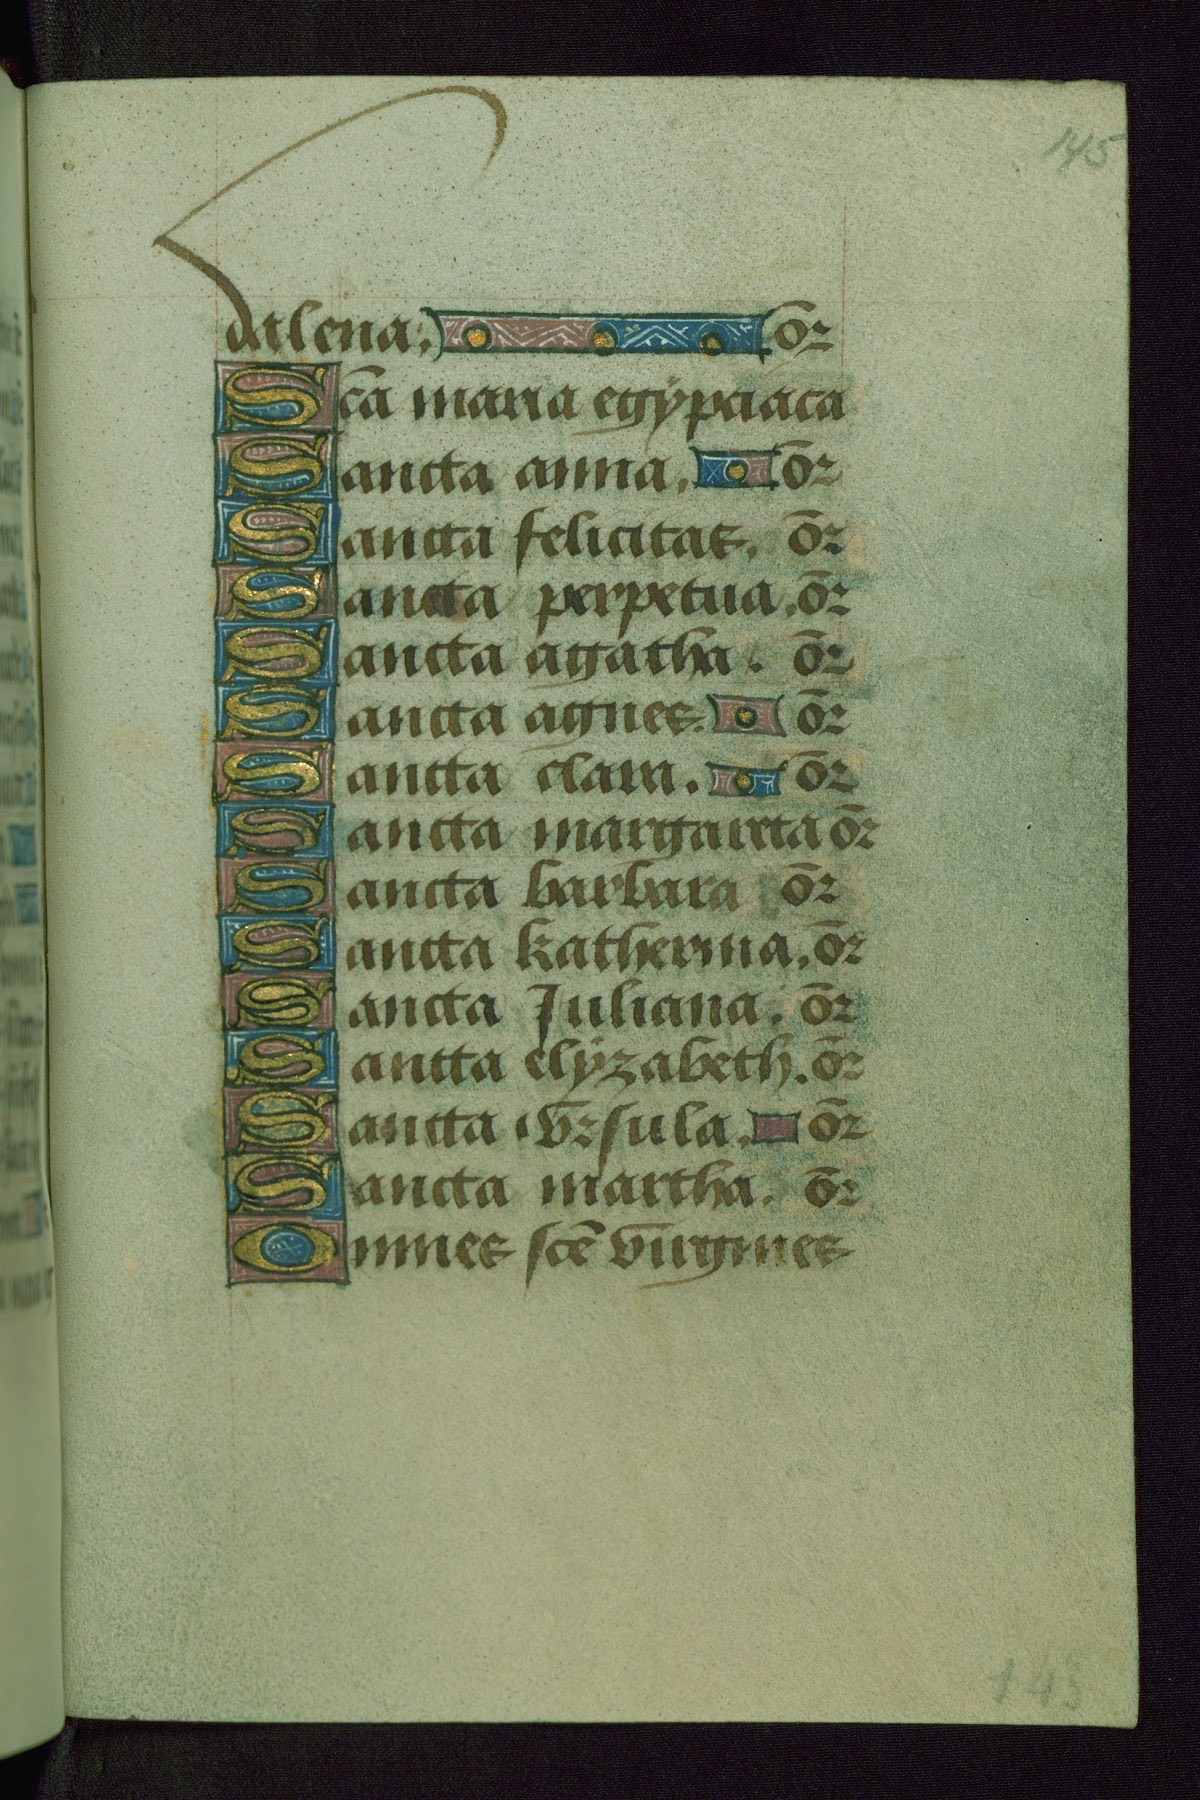 145
dalena. or̄
Sc̄a maria egÿpciaca
Sancta anna. or̄
Sancta felicitas. or̄
Sancta perpetua. or̄
Sancta agatha. or̄
Sancta agnes. or̄
Sancta clara. or̄
Sancta margareta or̄
Sancta barbara or̄
Sancta katherina. or̄
Sancta Juliana. or̄
Sancta elÿzabeth. or̄
Sancta vrsula. or̄
Sancta martha. or̄
Omnes scē virgines
145